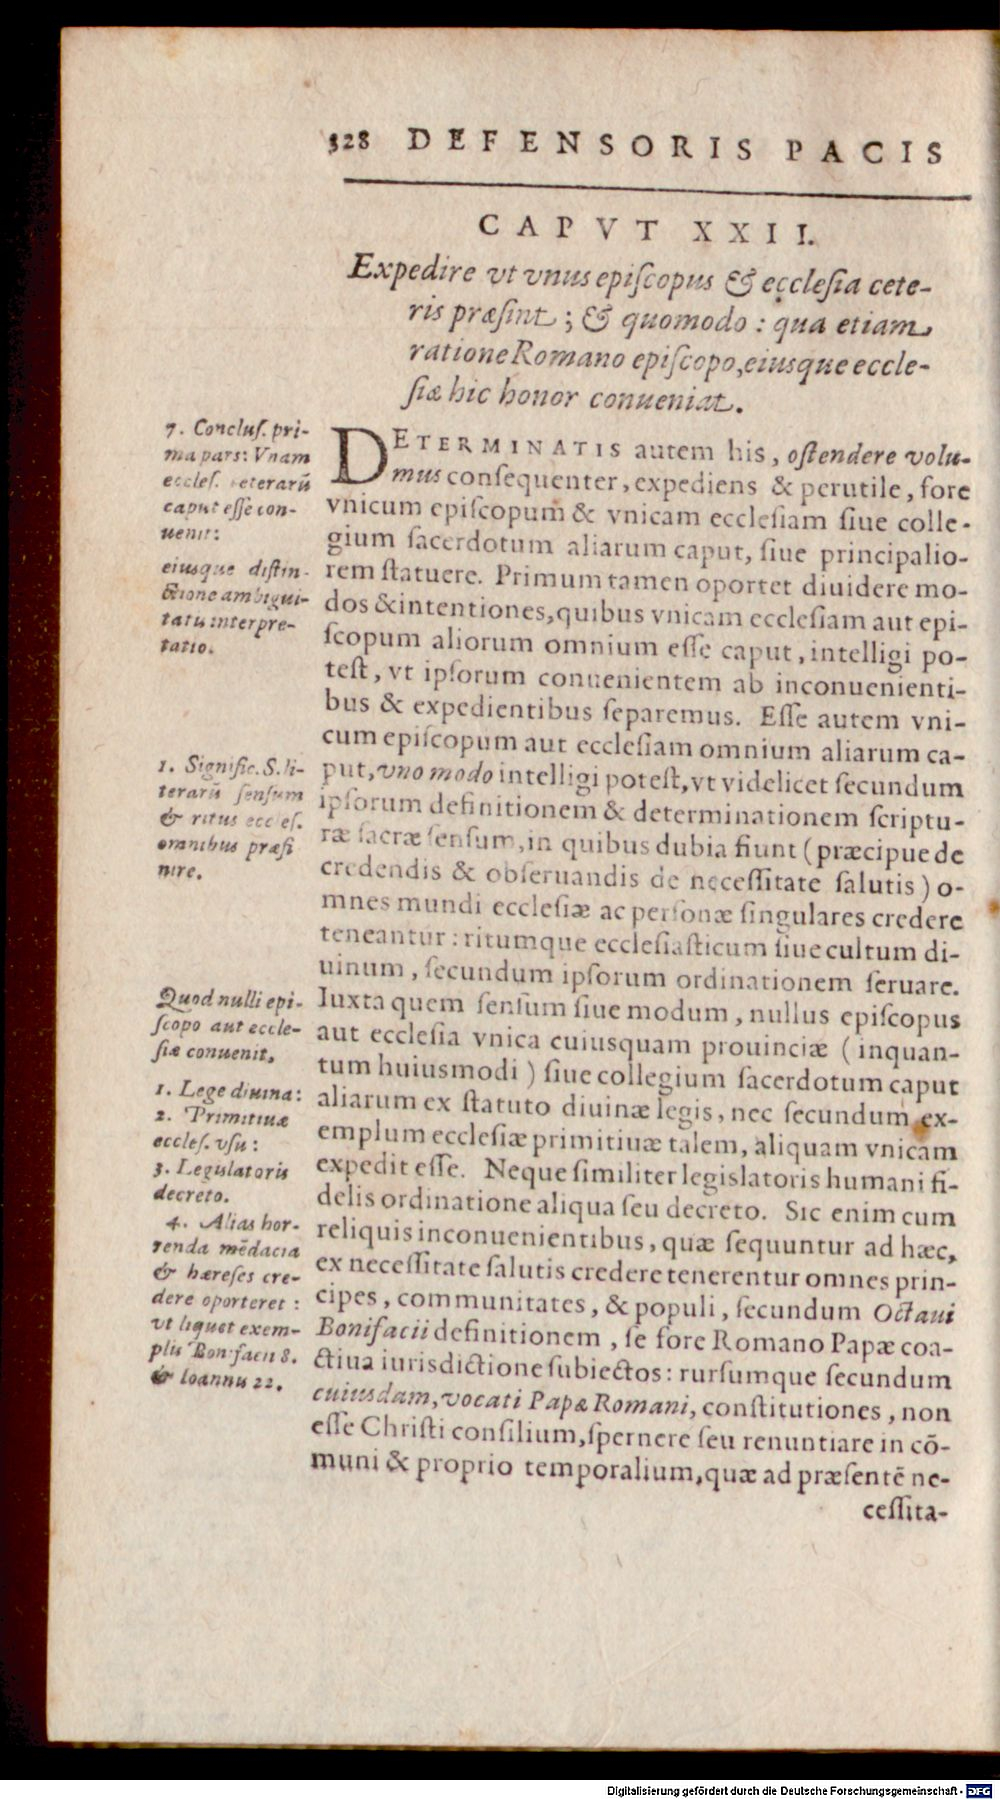 328 DEFENSORIS PACIS
CAPVT XXII.
Expedire vt vnus epiſcopus & ecclesia cete-
ris præſint; & quomodo: qua etiam
ratione Romano epiſcopo, eiusque eccle-
ſiæ hic honor conueniat.
7. Concluſ. pri-
ma pars: Vnam
eccleſ. ceterarū
caput eſſe con-
uenit:
eiusque diſtin-
ctione ambigui-
tatis interpre-
tatio.
DETERMINATIS autem his, oſtendere volu-
mus conſequenter, expediens & perutile, fore
vnicum epiſcopum & vnicam eccleſiam ſiue colle-
gium ſacerdotum aliarum caput, ſiue principalio-
rem ſtatuere. Primum tamen oportet diuidere mo-
dos & intentiones, quibus vnicam eccleſiam aut epi-
ſcopum aliorum omnium eſſe caput, intelligi po-
teſt, vt ipſorum conuenientem ab inconuenienti-
bus & expedientibus ſeparemus. Eſſe autem vni-
cum epiſcopum aut eccleſiam omnium aliarum ca-
put, vno modo intelligi poteſt, vt videlicet ſecundum
ipſorum definitionem & determinationem ſcriptu-
ræ ſacræ ſenſum, in quibus dubia fiunt (præcipue de
credendis & obſeruandis de neceſſitate ſalutis) o-
mnes mundi eccleſiæ ac perſonæ ſingulares credere
teneantur: ritumque eccleſiaſticum ſiue cultum di-
uinum, ſecundum ipſorum ordinationem ſeruare.
Iuxta quem ſenſum ſiue modum, nullus epiſcopus
aut eccleſia vnica cuiusquam prouinciæ (inquan-
tum huiusmodi) ſiue collegium ſacerdotum caput
aliarum ex ſtatuto diuinæ legis, nec ſecundum ex-
emplum eccleſiæ primitiuæ talem, aliquam vnicam
expedit eſſe. Neque ſimiliter legislatoris humani fi-
delis ordinatione aliqua ſeu decreto. Sic enim cum
reliquis inconuenientibus, quæ ſequuntur ad hæc,
ex neceſſitate ſalutis credere tenerentur omnes prin-
cipes, communitates, & populi, ſecundum Octaui
Bonifacii definitionem, ſe fore Romano Papæ coa-
ctiua iurisdictione ſubiectos: rurſumque ſecundum
cuiusdam, vocati Papæ Romani, conſtitutiones, non
eſſe Chriſti conſilium, ſpernere ſeu renuntiare in cō-
muni & proprio temporalium, quæ ad præſentē ne-
ceſſita-
1. Signific. S. li-
terarū ſenſum
& ritus eccleſ.
omnibus præfi
nire.
Quod nulli epi-
ſcopo aut eccle-
ſiæ conuenit,
1. Lege diuina:
2. Primitiuæ
eccleſ. vſu:
3. Legislatoris
decreto.
4. Alias hor-
renda mēdacia
& hæreſes cre-
dere oporteret:
vt liquet exem-
plis Bonifacii 8.
& Ioannis 22.
Digitalisierung gefördert durch die Deutsche Forschungsgemeinschaft - DFG